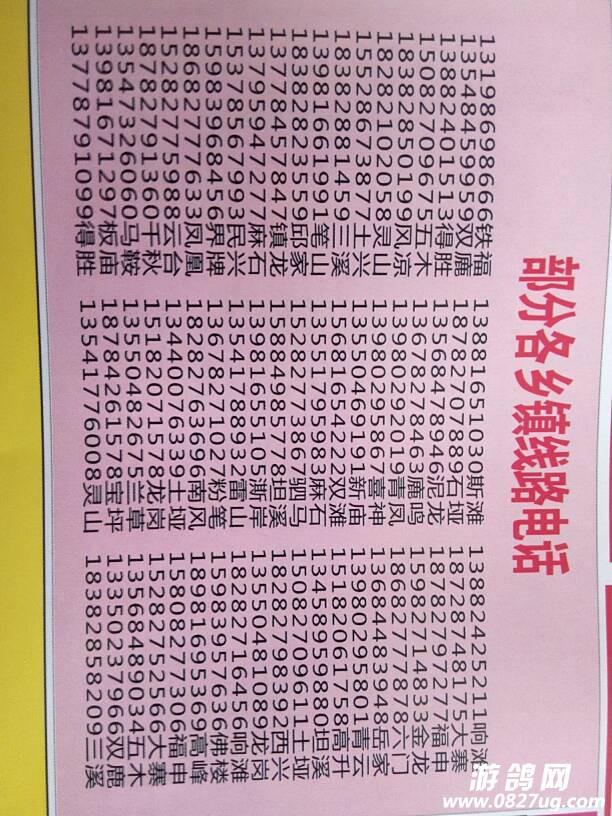 部分各乡镇线路电话
13198698666铁福
13548459959双鹿
13882401513得胜
15082709675五木
18382850199风凉
18282102058灵山
15528673877土兴
18382881459三溪
13981661991笔山
18382823559邱家
13778457847镇龙
13795947277麻石
15378567993民兴
15983968456界牌
18682777633凤凰
15282775988云台
18782791360千秋
13547326060马鞍
13981671297板庙
13778791099得胜
13881651030斯滩
18782707889石垭
13568478946泥龙
13678278463鹿鸣
13980292019青凤
13980295867喜神
13550469191新庙
15681654222双滩
13551795983麻石
15282773867驷马
15884985778坦溪
13981655105澌岸
13541788932雷山
13678271027粉笔
18282763696南风
13440076339土垭
15182071578龙岗
13550482675兰草
18784261578宝坪
13541776008灵山
13882425211响滩
18728748175大寨
18782797277福申
15982714833金龙
18682777878六门
13684483948岳家
13980295801青云
15182061758高升
13458959880坦溪
15082709611土垭
18282798392西兴
13550481089龙岗
18282716456响滩
15983957636佛楼
18981695369高峰
15808277306福申
15282752566大寨
13568489034五木
13350237966双鹿
18382858209三溪
游鸽网
www.0827ug.com